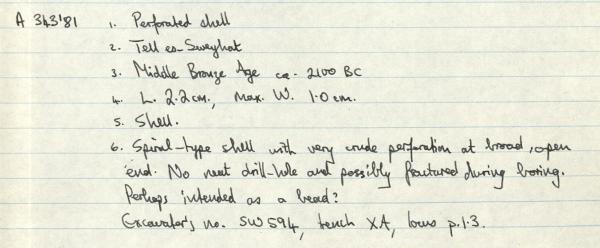 A 343'81 1. Perforated shell
2. Tell es-Sweyhat
3. Middle Bronze Age ca. 2100 BC
4. L. 2.2cm., max. W. 1.0 cm.
5. Shell.
6. Spiral-type shell with very crude perforation at broad, open
end. No neat drill-hole and possibly fractured during boring.
Perhaps intended as a bead?
Excavator's no. SW594, trench XA, locus p.1.3.